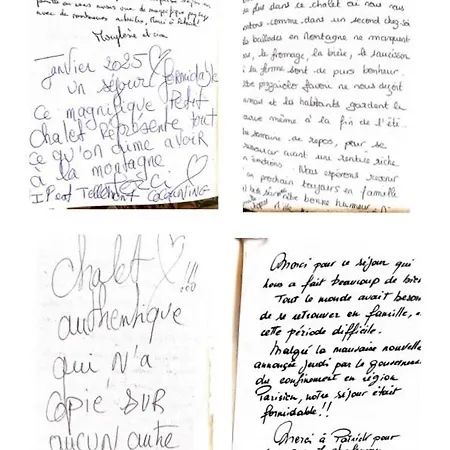 avec de nombreuses
Janvier 2025
un séjour formidable
ce magnifique Petit
chalet représente tout
ce qu'on aime avoir
à la montagne
Merci
se plus dans ce chalet où nous nous
comme dans un second chez-soi
ballades en montagne ne manquent
le fromage, la bière, le saucisson
la ferme sont de purs bonheur.
ne nous déçoit
et la habitants gardent le
même à la fin de l'été.
semaine de repos, pour se
avant une rentrée riche
Nous espérons revenir
prochain toujours en famille
bonne humeur
Chalet !!!
authentique
qui N'a
copié SUR
aucun autre
Merci pour ce séjour qui
nous a fait beaucoup de bien
Tout le monde avait besoin
de se retrouver en famille,
cette période difficile.
Malgré la mauvaise nouvelle
annoncée jeudi par le gouvernement
du confinement en région
Parisien, notre séjour était
formidable!!
Merci à Patrick pour